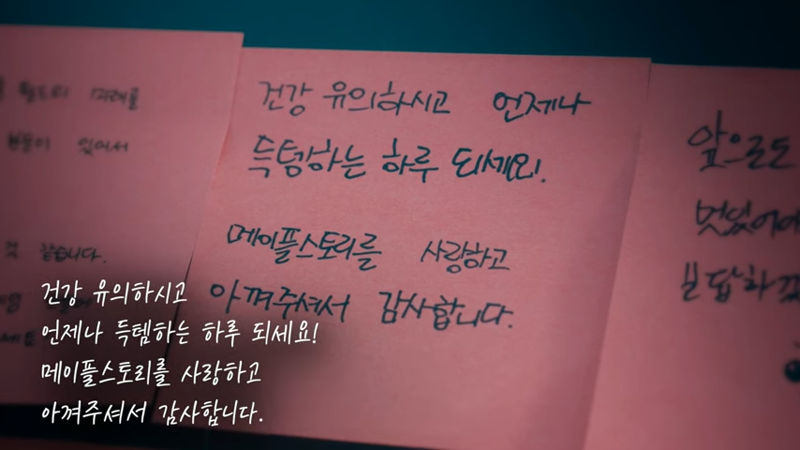 미래를
있어서
같습니다.
건강 유의하시고 언제나
득템하는 하루 되세요!
메이플스토리를 사랑하고
아껴주셔서 감사합니다.
앞으로도
보답하겠
건강 유의하시고
언제나 득템하는 하루 되세요!
메이플스토리를 사랑하고
아껴주셔서 감사합니다.